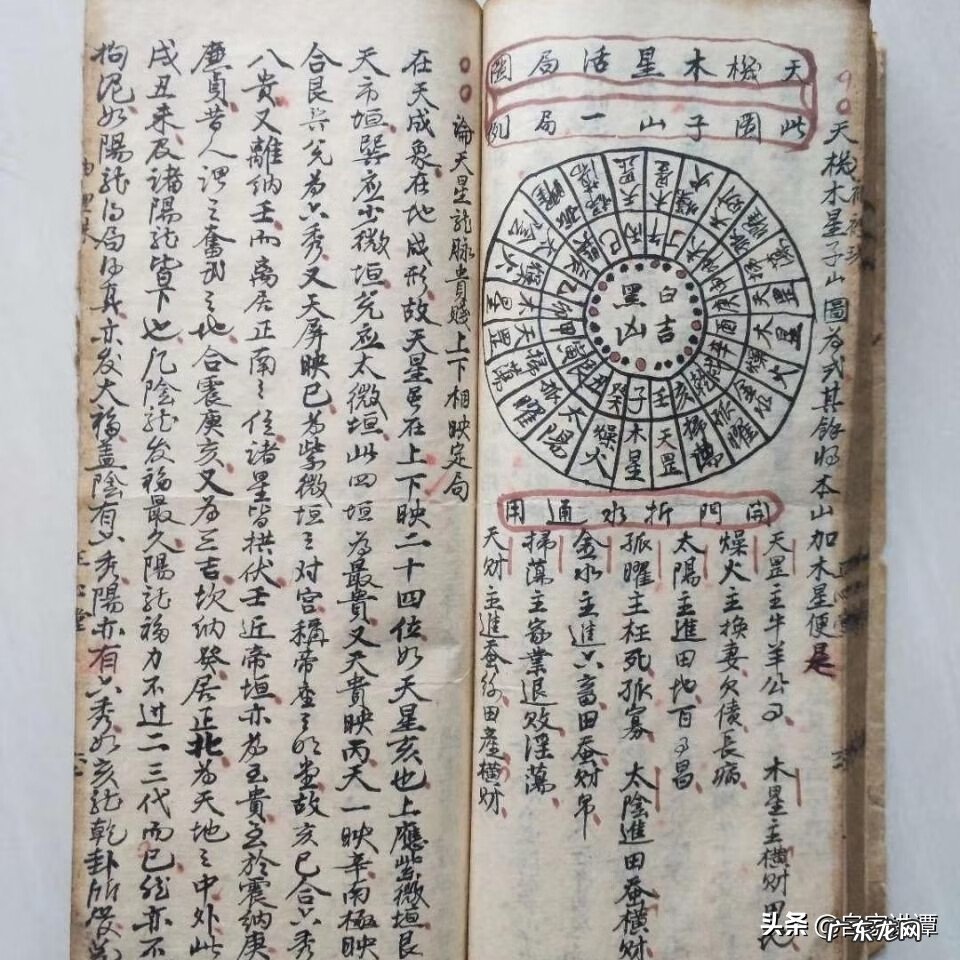 天機木星子山圖為式其餘將本山加木星便是
天機木星活局圖
此圖子山一局例
白吉
黑凶
子
癸
丑
艮
寅
甲
乙
辰
巽
巳
丙
午
丁
未
坤
申
庚
酉
辛
乾
亥
壬
木星
燥火
太陽
天罡
掃蕩
孤曜
開門折水通用
天罡主牛羊公事 木星主橫財田地
燥火主換妻欠債長病
太陽主進田地百事昌
孤曜主枉死孤寡 太陰進田蚕橫財
金水主進六畜田蚕財帛
掃蕩主家業退敗淫蕩
天財主進蚕絲田產橫財
論天星龍脉貴賤上下相映定局
在天成象在地成形故天星在上下映二十四位如天星亥也上應紫微垣艮
天市垣巽應少微垣兌應太微垣此四垣為最貴又天貴映丙天一映辛南極映
合艮巽兌為六秀又天屏映巳為紫微垣之对宮稱帝座之明堂故亥巳合六秀
八貴又離納壬而离居正南之位諸星皆拱伏壬近帝垣亦為至貴至於震納庚
廉貞昔人謂之奮武之地合震庚亥又為三吉坎納癸居正北為天地之中外此
戌丑未辰諸陽龍皆下也凡陰龍发福最久陽龍福力不过二三代而已然亦不
拘泥如陽龍得局得真亦发大福盖陰有六秀陽亦有六秀如亥龍乾卦所
头条@客家讲谭
广东龙网